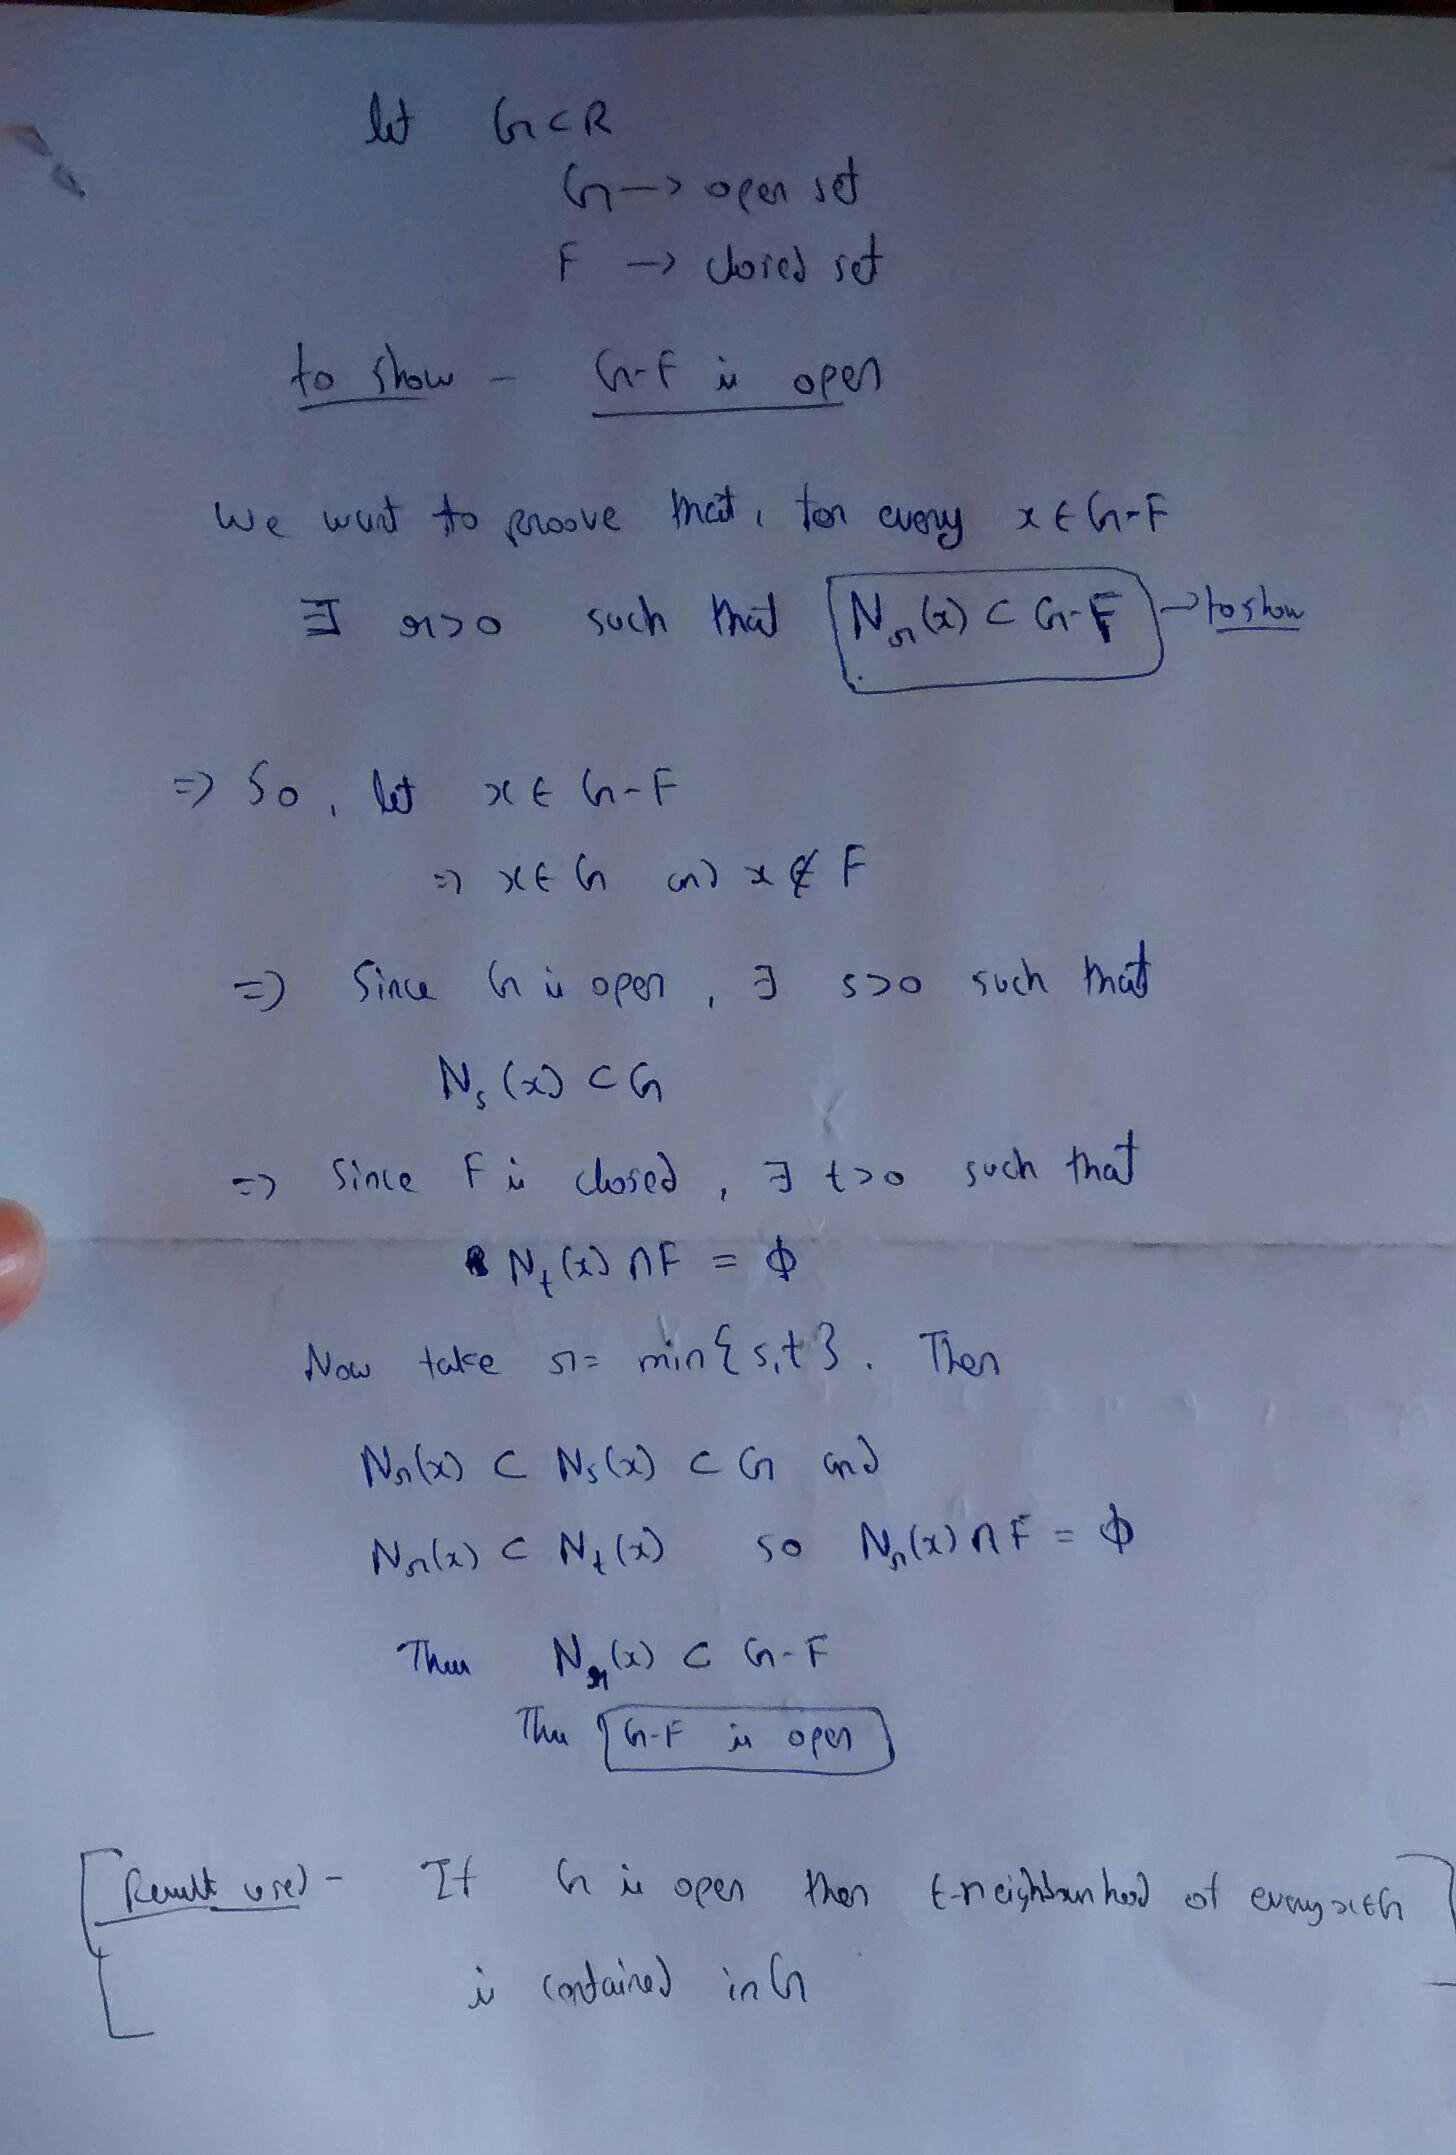 let G⊂R
G → open set
F → closed set
to show - G-F is open
We want to proove that, for every x ∈ G-F
∃ r>0 such that N_r(x) ⊂ G-F → to show
=> So, let x ∈ G-F
=> x ∈ G and x ∉ F
=> Since G is open, ∃ s>0 such that
N_s(x) ⊂ G
=> Since F is closed, ∃ t>0 such that
N_t(x) ∩ F = ϕ
Now take r = min{s,t}. Then
N_r(x) ⊂ N_s(x) ⊂ G and
N_r(x) ⊂ N_t(x) so N_r(x) ∩ F = ϕ
Thus N_r(x) ⊂ G-F
Thus G-F is open
[Result used - If G is open then ε-neighbourhood of every x∈G]
is contained in G